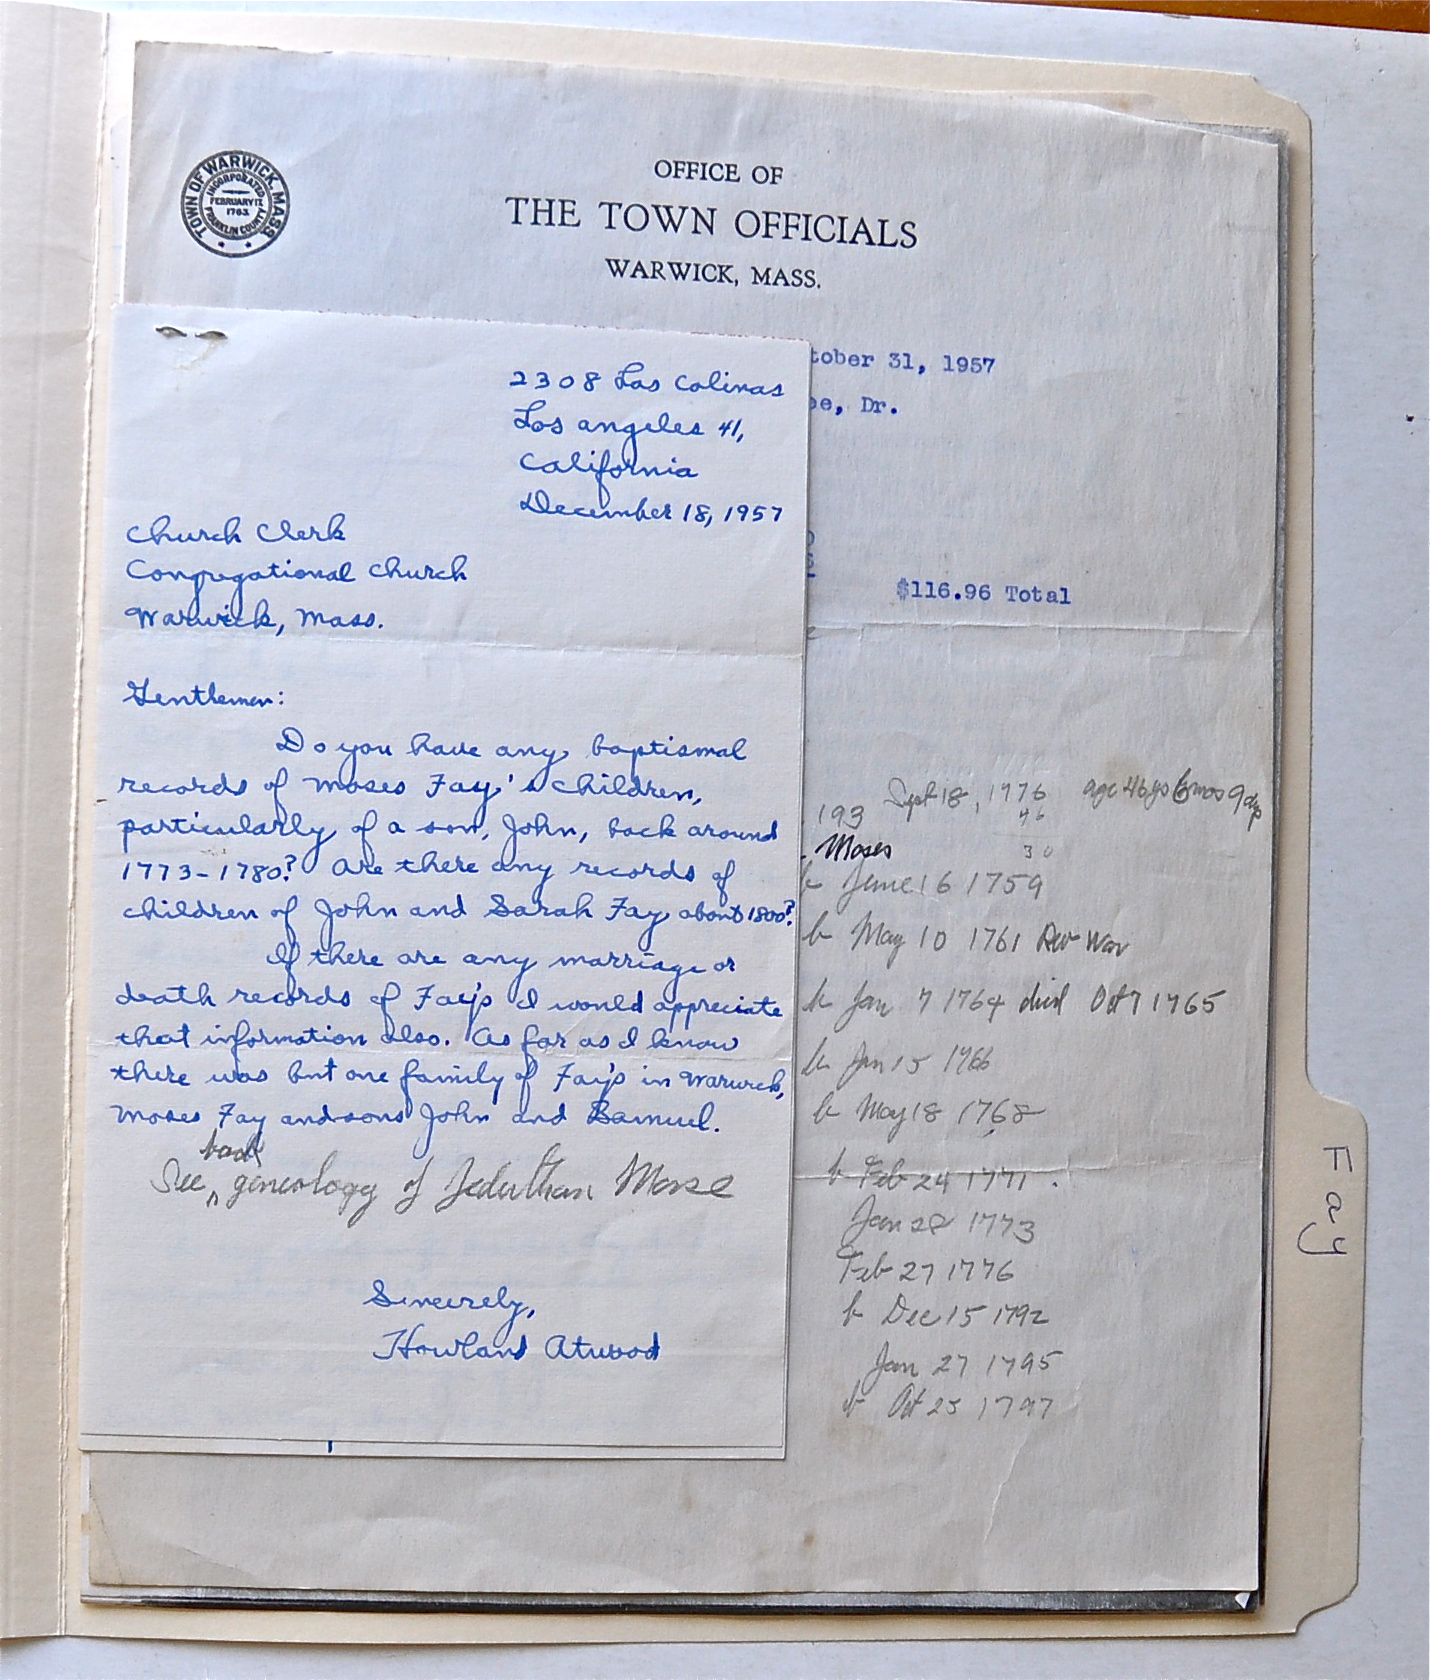 TOWN OF WARWICK, MASS.
INCORPORATED
FEBRUARY 17,
1763.
FRANKLIN COUNTY
OFFICE OF
THE TOWN OFFICIALS
WARWICK, MASS.
tober 31, 1957
oe, Dr.
$116.96 Total
2308 Las Colinas
Los Angeles 41,
California
December 18, 1957
Church Clerk
Congregational Church
Warwick, Mass.
Gentlemen:
Do you have any baptismal
records of Moses Fay's children,
particularly of a son, John, back around
1773-1780? Are there any records of
children of John and Sarah Fay about 1800?
If there are any marriage or
death records of Fay's I would appreciate
that information also. As far as I know
there was but one family of Fay's in Warwick,
Moses Fay and sons John and Samuel.
back
See genealogy of Jeduthan Morse
Sincerely,
Howland Atwood
Sept 18, 1776 age 46 ys 6 mos 9 dys
193 46
Moses 30
b June 16 1759
b May 10 1761 Rev War
b Jan 7 1764 died Oct 7 1765
b Jan 15 1766
b May 18 1768
b Feb 24 1771.
Jan 28 1773
Feb 27 1776
b Dec 15 1792
Jan 27 1795
b Oct 25 1797
Fay